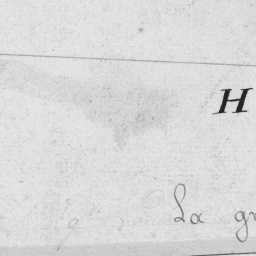 H
La gr